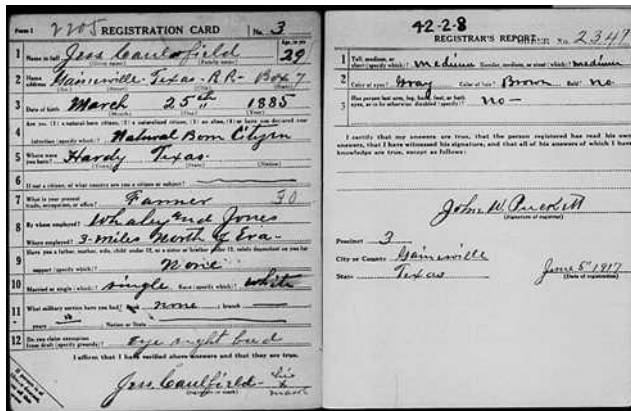 Form 1 2205 REGISTRATION CARD No. 3
1 Name in full Jess Caulofield Age, in yrs. 29
(Given name) (Family name)
2 Home address Gainesville Texas - R.R - Box 7
(No.) (Street) (City) (State)
3 Date of birth March 25th 1885
(Month) (Day) (Year)
Are you (1) a natural-born citizen, (2) a naturalized citizen, (3) an alien, (4) or have you declared your
4 intention (specify which)? Natural Born Citizen
5 Where were you born? Hardy Texas
(Town) (State) (Nation)
6 If not a citizen, of what country are you a citizen or subject?
7 What is your present trade, occupation, or office? Farmer 30
8 By whom employed? Whaley and Jones
Where employed? 3-miles North of Era-
Have you a father, mother, wife, child under 12, or a sister or brother under 12, solely dependent on you for
9 support (specify which)? None
10 Married or single (which)? single Race (specify which)? White
11 What military service have you had? Rank none branch
years Nation or State
12 Do you claim exemption from draft (specify grounds)? eye sight bad
I affirm that I have verified above answers and that they are true.
Jess Caulfield - his x mark
(Signature or mark)
42-2-8
REGISTRAR'S REPORT No. 2347
1 Tall, medium, or short (specify which)? medium Slender, medium, or stout (which)? medium
2 Color of eyes? Gray Color of hair? Brown Bald? no
3 Has person lost arm, leg, hand, foot, or both eyes, or is he otherwise disabled (specify)? no-
I certify that my answers are true, that the person registered has read his own
answers, that I have witnessed his signature, and that all of his answers of which I have
knowledge are true, except as follows:
John W. Puckett
(Signature of registrar)
Precinct 3
City or County Gainesville
State Texas June 5" 1917
(Date of registration)